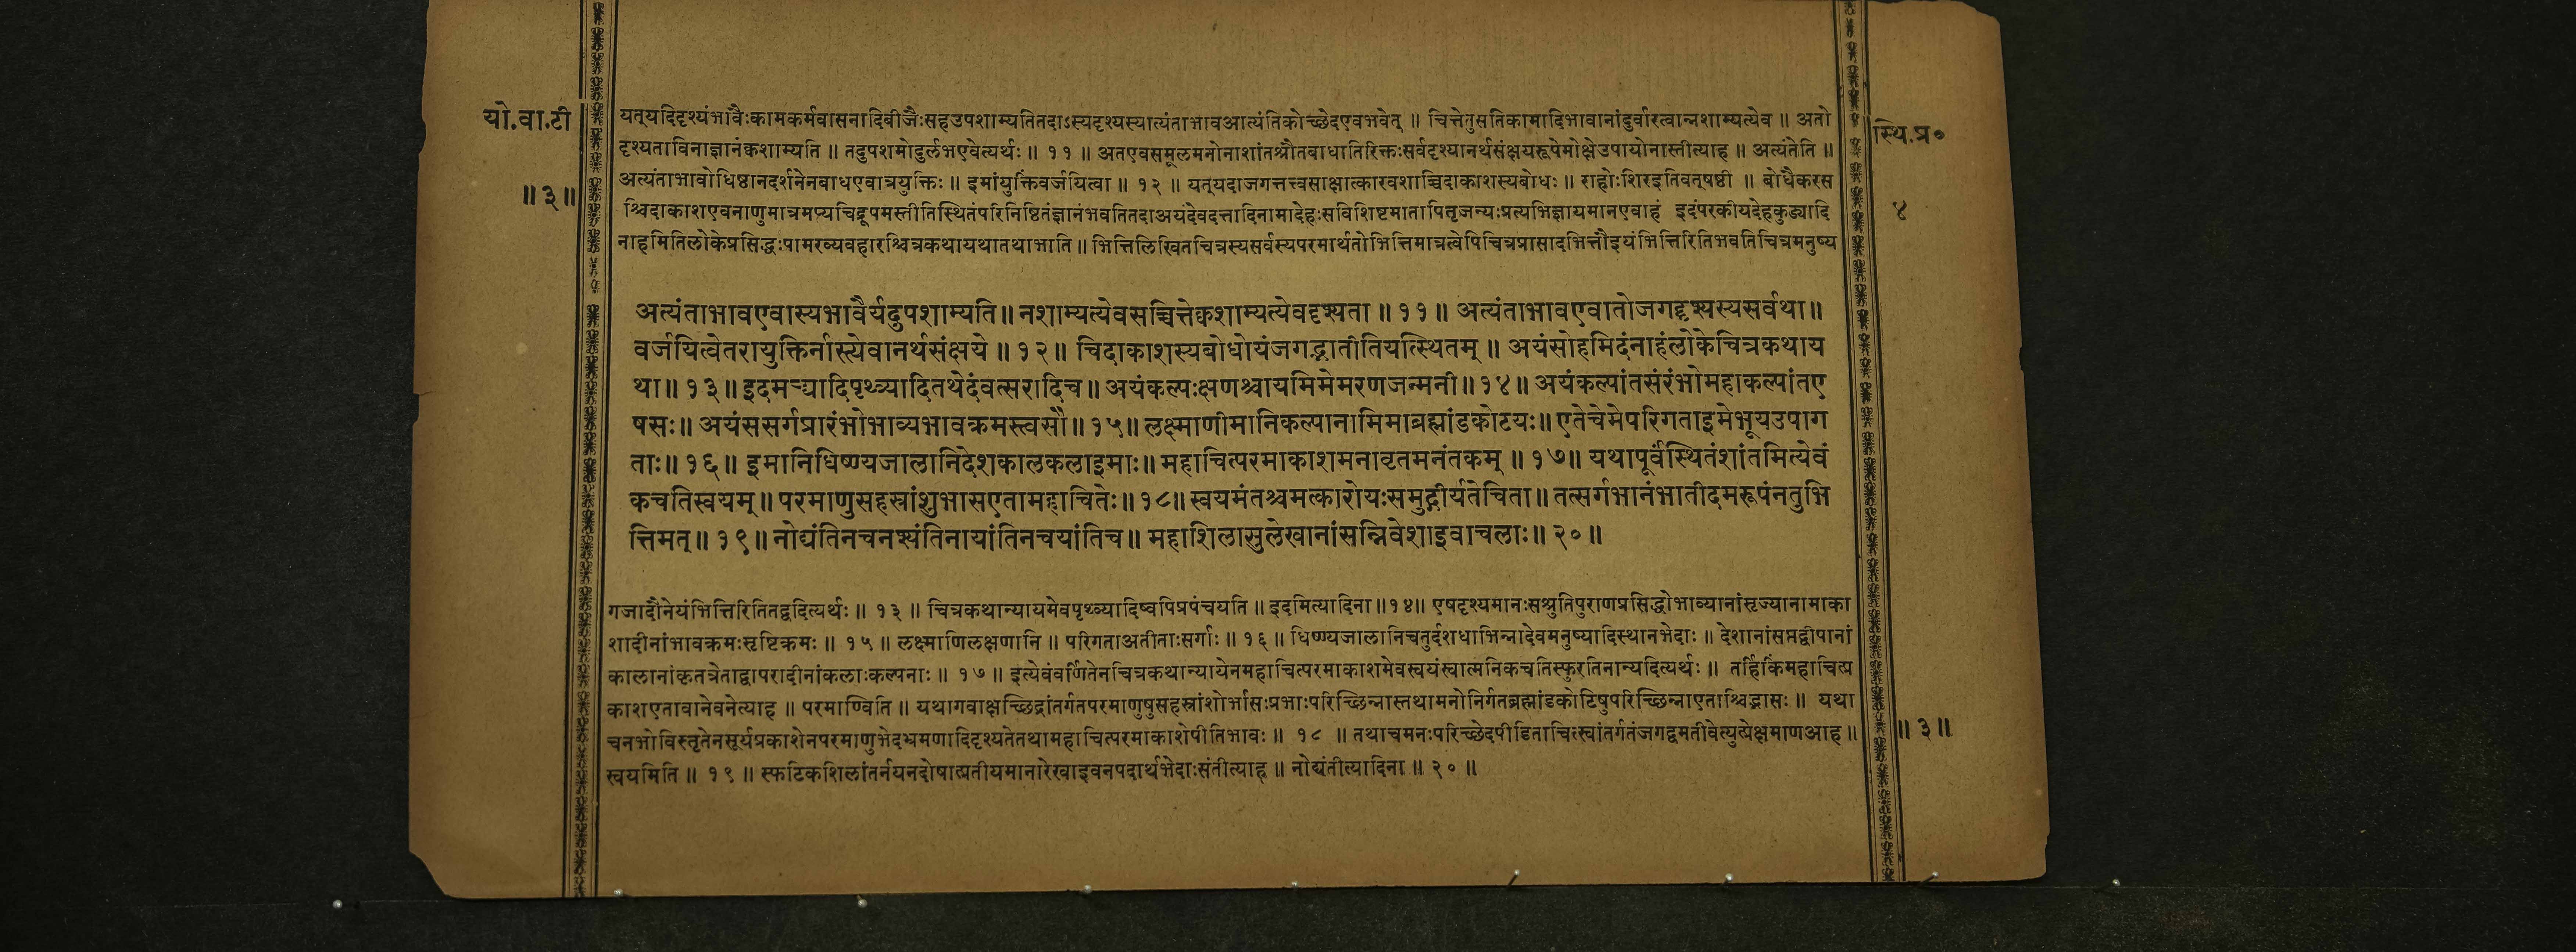 यो.वा.टी
॥ ३ ॥
स्थि.प्र०
४
यत्‌यदिदृश्यंभावैःकामकर्मवासनादिबीजैःसहउपशाम्यतितदाऽस्यदृश्यस्यात्यंताभावआत्यंतिकोच्छेदएवभवेत् ॥ चित्तेतुसतिकामादिभावानांदुर्वारत्वान्नशाम्यत्येव ॥ अतो
दृश्यताविनाज्ञानंक्वशाम्यति ॥ तदुपशमोदुर्लभएवेत्यर्थः ॥ ११ ॥ अतएवसमूलमनोनाशांतश्रौतबाधातिरिक्तःसर्वदृश्यानर्थसंक्षयरूपेमोक्षेउपायोनास्तीत्याह ॥ अत्यंतेति ॥
अत्यंताभावोधिष्ठानदर्शनेनबाधएवात्रयुक्तिः ॥ इमांयुक्तिंवर्जयित्वा ॥ १२ ॥ यत्‌यदाजगत्तत्त्वसाक्षात्कारवशाच्चिदाकाशस्यबोधः ॥ राहोःशिरइतिवत्‌षष्ठी ॥ बोधैकरस
श्चिदाकाशएवनाणुमात्रमप्यचिद्रूपमस्तीतिस्थितंपरिनिष्ठितंज्ञानंभवतितदाअयंदेवदत्तादिनामादेहःसविशिष्टमातापितृजन्यःप्रत्यभिज्ञायमानएवाहं इदंपरकीयदेहकुड्यादि
नाहमितिलोकेप्रसिद्धःपामरव्यवहारश्चित्रकथायथातथाभाति ॥ भित्तिलिखितचित्रस्यसर्वस्यपरमार्थतोभित्तिमात्रत्वेपिचित्रप्रासादभित्तौइयंभित्तिरितिभवतिचित्रमनुष्य
अत्यंताभावएवास्यभावैर्यदुपशाम्यति॥ नशाम्यत्येवसच्चित्तेक्वशाम्यत्येवदृश्यता ॥ ११ ॥ अत्यंताभावएवातोजगद्दृश्यस्यसर्वथा॥
वर्जयित्वेतरायुक्तिर्नास्त्येवानर्थसंक्षये ॥ १२॥ चिदाकाशस्यबोधोयंजगद्भातीतियत्स्थितम् ॥ अयंसोहमिदंनाहंलोकेचित्रकथाय
था॥ १३॥ इदमद्र्यादिपृथ्व्यादितथेदंवत्सरादिच॥ अयंकल्पःक्षणश्चायमिमेमरणजन्मनी॥ १४॥ अयंकल्पांतसंरंभोमहाकल्पांतए
षसः॥ अयंससर्गप्रारंभोभाव्यभावक्रमस्त्वसौ॥ १५॥ लक्ष्माणीमानिकल्पानामिमाब्रह्मांडकोटयः॥ एतेचेमेपरिगताइमेभूयउपाग
ताः॥ १६॥ इमानिधिष्ण्यजालानिदेशकालकलाइमाः॥ महाचित्परमाकाशमनावृतमनंतकम् ॥ १७॥ यथापूर्वंस्थितंशांतमित्येवं
कचतिस्वयम्॥ परमाणुसहस्रांशुभासएतामहाचितेः॥ १८॥ स्वयमंतश्चमत्कारोयःसमुद्गीर्यतेचिता॥ तत्सर्गभानंभातीदमरूपंनतुभि
त्तिमत्॥ १९॥ नोद्यंतिनचनश्यंतिनायांतिनचयांतिच॥ महाशिलासुलेखानांसन्निवेशाइवाचलाः॥ २०॥
गजादौनेयंभित्तिरितितद्वदित्यर्थः ॥ १३ ॥ चित्रकथान्यायमेवपृथ्व्यादिष्वपिप्रपंचयति ॥ इदमित्यादिना ॥१४॥ एषदृश्यमानःसश्रुतिपुराणप्रसिद्धोभाव्यानांसृज्यानामाका
शादीनांभावक्रमःसृष्टिक्रमः ॥ १५ ॥ लक्ष्माणिलक्षणानि ॥ परिगताअतीताःसर्गाः ॥ १६ ॥ धिष्ण्यजालानिचतुर्दशधाभिन्नादेवमनुष्यादिस्थानभेदाः ॥ देशानांसप्तद्वीपानां
कालानांकृतत्रेताद्वापरादीनांकलाःकल्पनाः ॥ १७ ॥ इत्येवंवर्णितेनचित्रकथान्यायेनमहाचित्परमाकाशमेवस्वयंस्वात्मनिकचतिस्फुरतिनान्यदित्यर्थः ॥ तर्हिकिंमहाचित्प्र
काशएतावानेवनेत्याह ॥ परमाण्विति ॥ यथागवाक्षच्छिद्रांतर्गतपरमाणुषुसहस्रांशोर्भासःप्रभाःपरिच्छिन्नास्तथामनोनिर्गतब्रह्मांडकोटिषुपरिच्छिन्नाएताश्चिद्भासः ॥ यथा
चनभोविस्तृतेनसूर्यप्रकाशेनपरमाणुभेदभ्रमणादिदृश्यतेतथामहाचित्परमाकाशेपीतिभावः ॥ १८ ॥ तथाचमनःपरिच्छेदपीडिताचित्स्वांतर्गतंजगद्वमतीवेत्युत्प्रेक्षमाणआह ॥
॥ ३ ॥
स्वयमिति ॥ १९ ॥ स्फटिकशिलांतर्नयनदोषात्प्रतीयमानारेखाइवनपदार्थभेदाःसंतीत्याह ॥ नोद्यंतीत्यादिना ॥ २० ॥